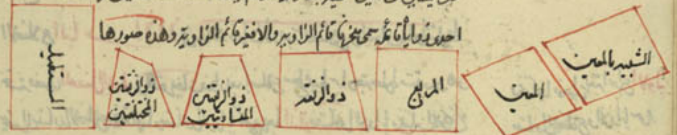 احدى زواياه قائمة سمى منحرفا قائم الزاوية والا فغير قائم الزاوية وهذه صورها
الشبيه بالمعين
المعين
المربع
ذو الزنقة
ذو الزنقتين
المتساويتين
ذو الزنقتين
المختلفتين
المستطيل